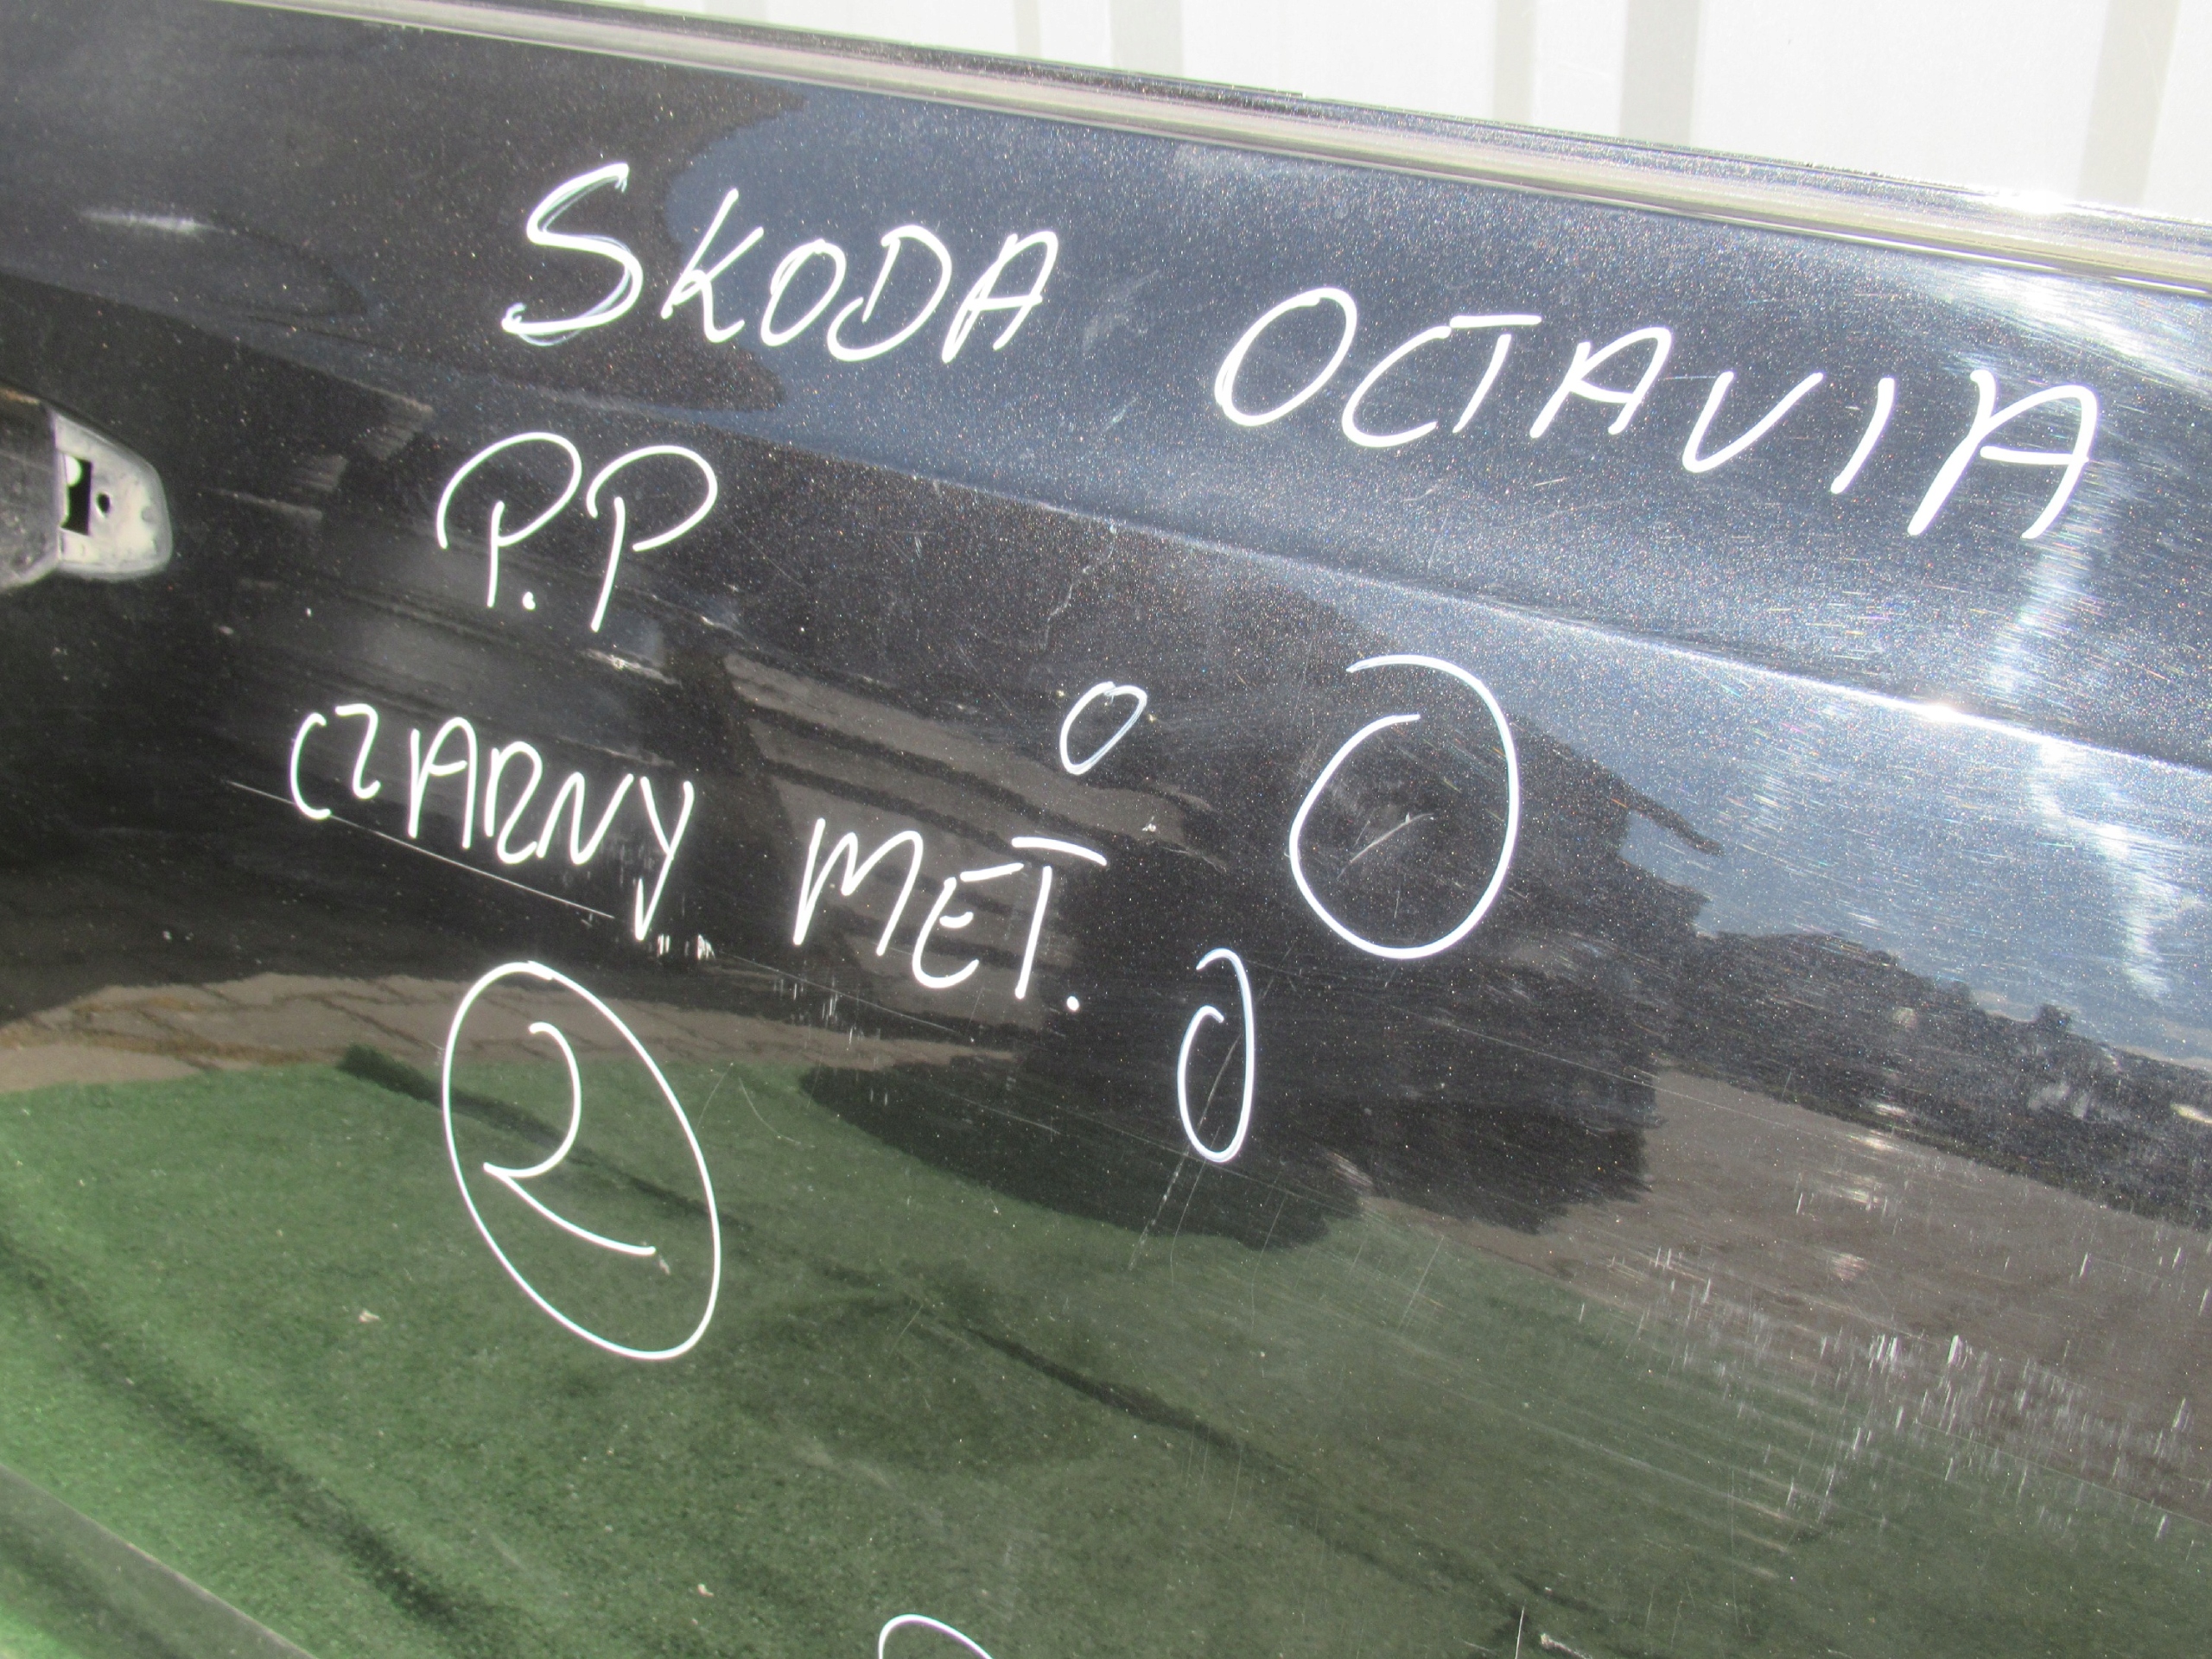 SKODA OCTAVIA
P.P
CZARNY MET.
2